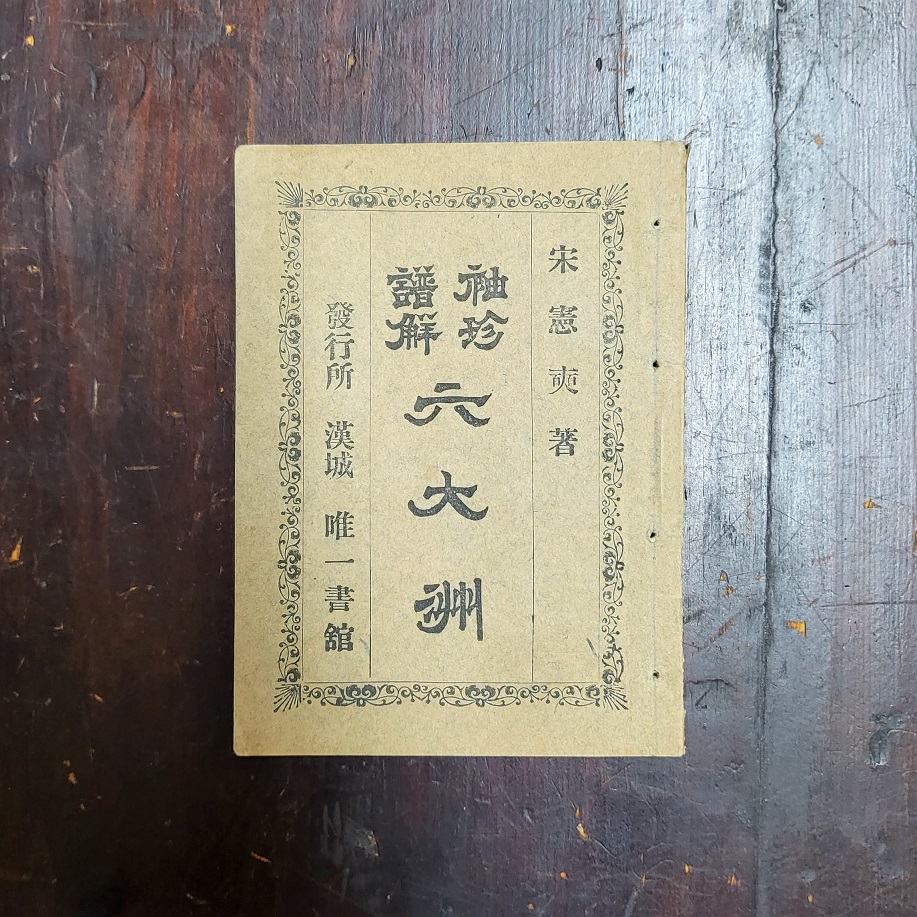 宋憲奭著
袖珍
譜解
六大洲
發行所 漢城 唯一書舘